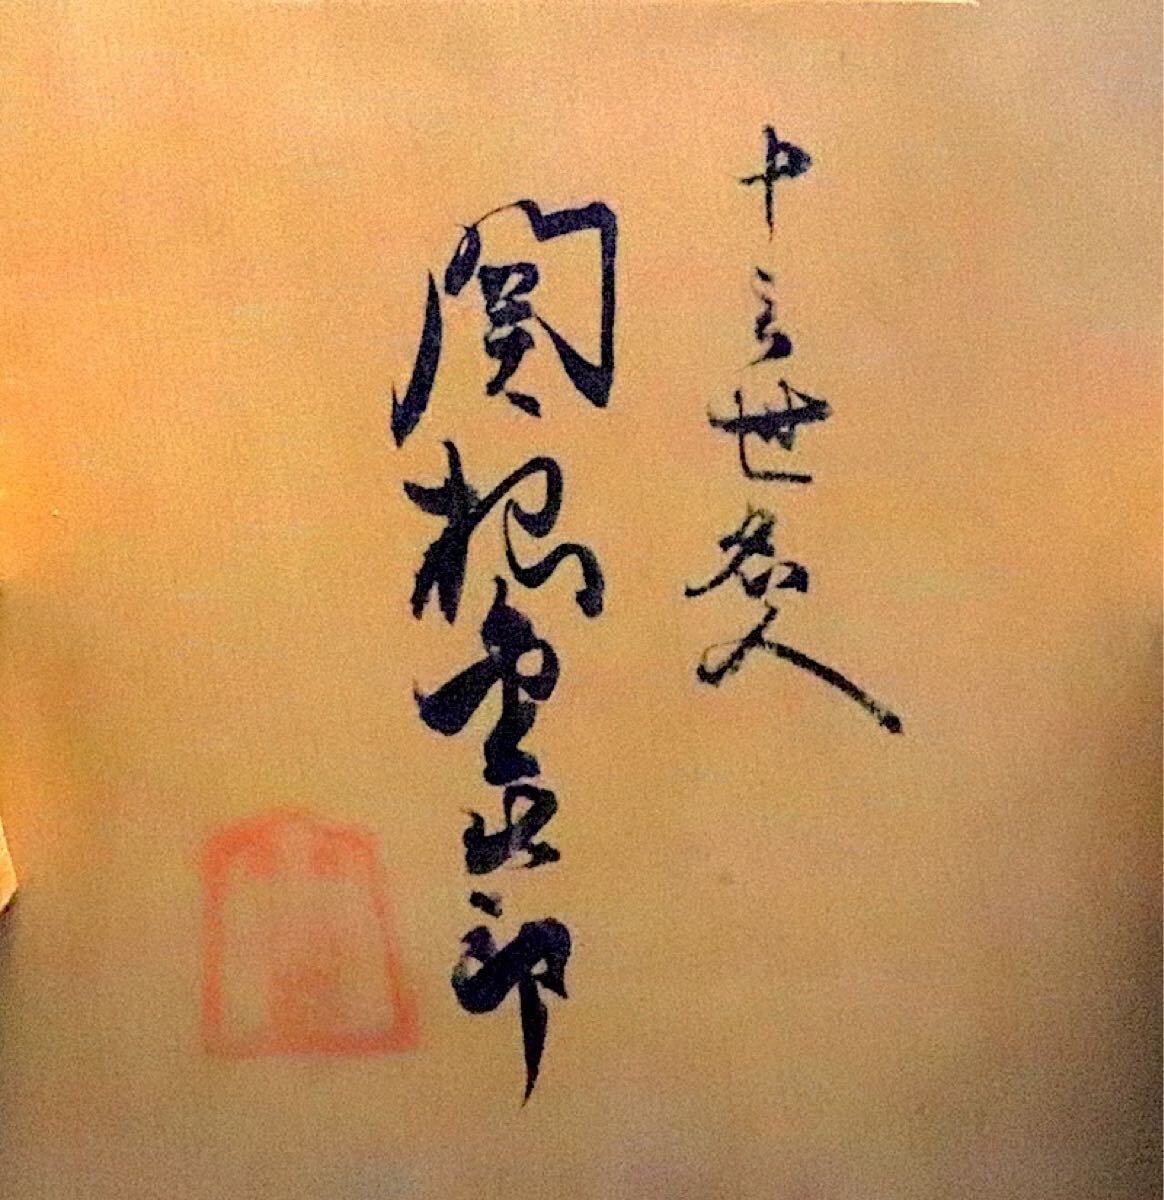 十三世名人
関根金次郎